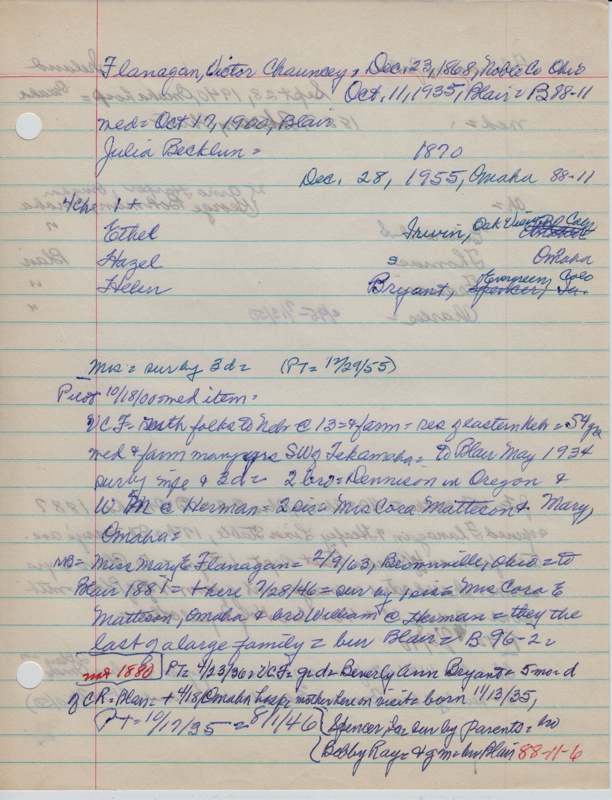 Flanagan, Victor Chauncey, Dec. 23, 1868, Noble Co Ohio
Oct. 11, 1935, Blair = B 88-11
med = Oct 17, 1900, Blair
Julia Becklun = 1870
Dec. 28, 1955, Omaha 88-11
4 che 1 +
Ethel Irwin, Oak View, Calif
Hazel s Omaha
Helen Bryant, Evergreen, Colo
Mrs = surby 3 d = (PT = 12/29/55)
Pilot 10/18/00 = med item =
VCF = with folks to Nebr @ 13 = & farm = res of eastern Nebr = 54 yrs
med & farm many yrs SW of Tekamah = to Blair May 1934
surby wife & 3 d = 2 bro = Dennison in Oregon &
W M @ Herman = 2 sis = Mrs Cora Matteson & Mary,
Omaha =
MB = Miss Mary E Flanagan = 2/9/63, Brownville, Ohio = to
Blair 1881 = + here 7/28/46 = sur by 1 sis = Mrs Cora E
Matteson Omaha & bro William @ Herman = they the
last of a large family = bur Blair = B 96-2 =
not 1880 PT = 4/23/36 = VCF = gr d = Beverly Ann Bryant = 5 mo = d
of CR = Blair = + 4/18, Omaha hosp = mother here on visit = born 11/13/35,
PT = 10/17/35 = 8/1/46 Spencer, Ia = sur by parents = bro
Bobby Ray = & g m = bur Blair 88-11-6